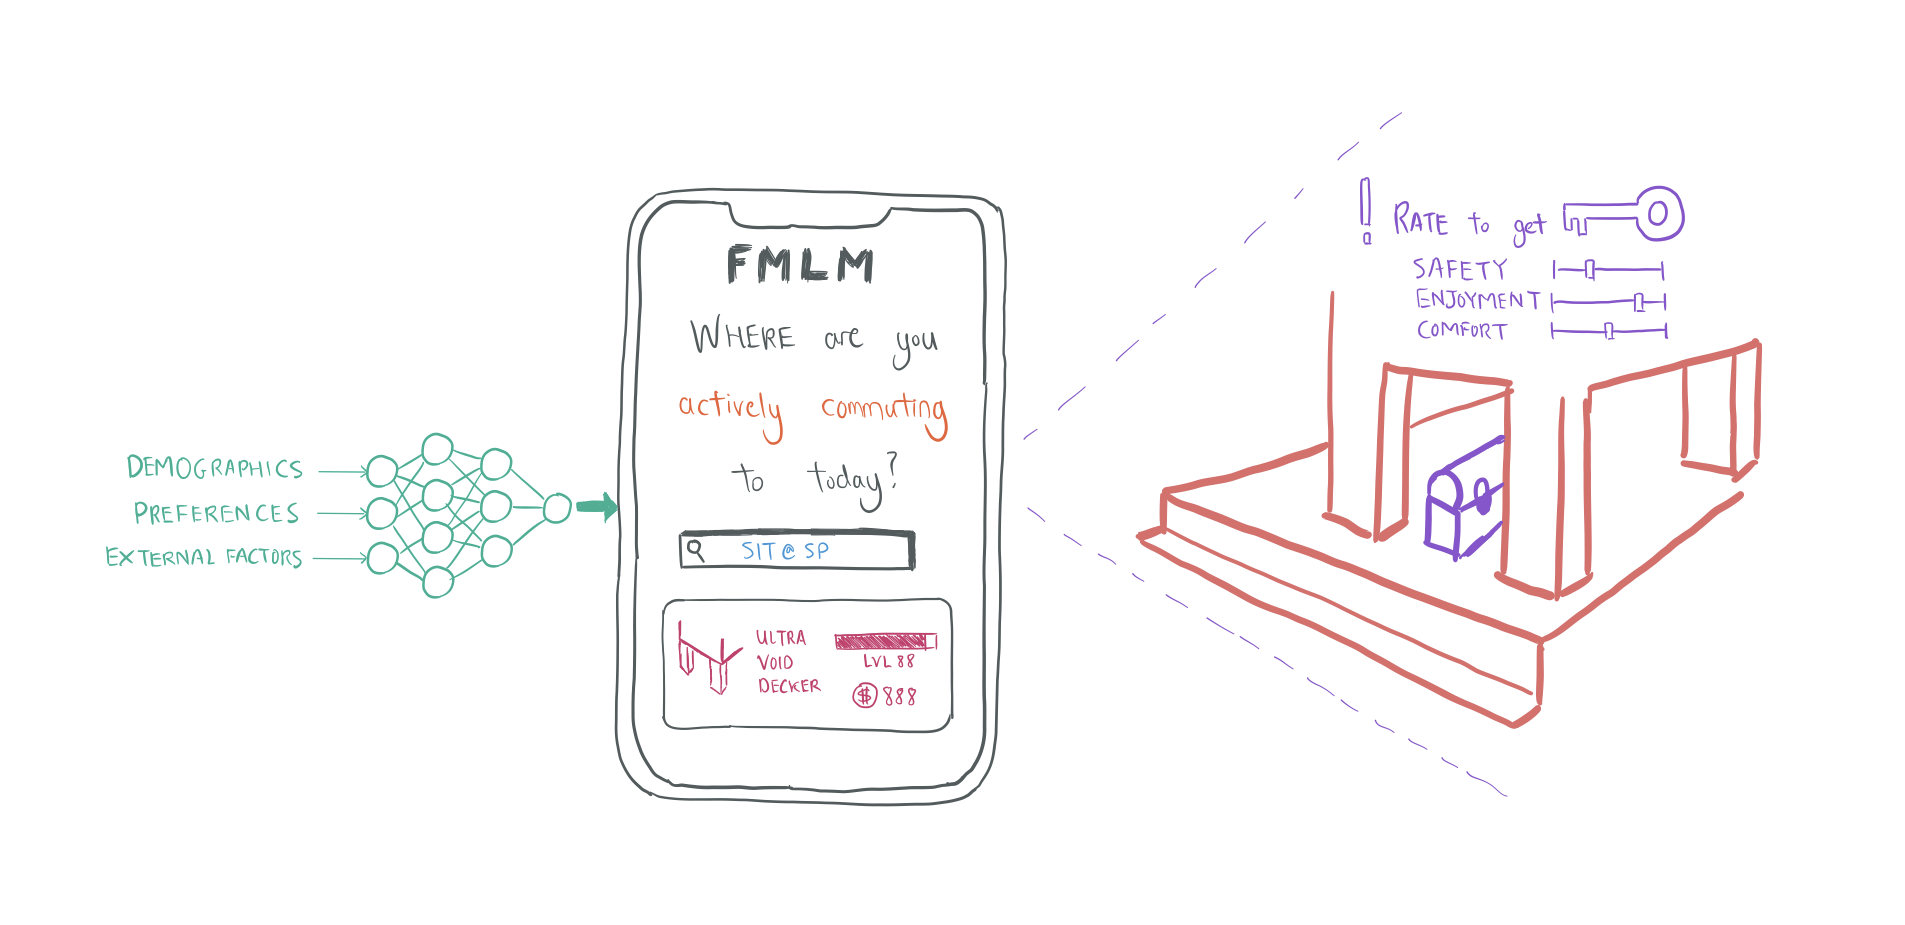 DEMOGRAPHICS
PREFERENCES
EXTERNAL FACTORS
FMLM
WHERE are you
actively commuting
to today?
SIT@SP
ULTRA
VOID
DECKER
LVL 88
$ 888
! RATE to get
SAFETY
ENJOYMENT
COMFORT